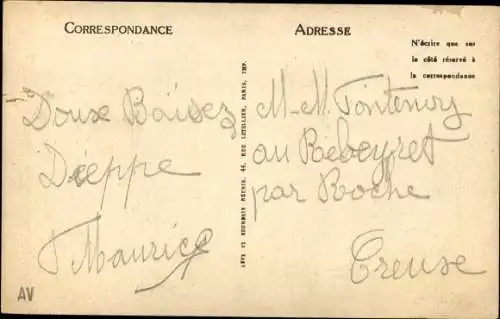 CORRESPONDANCE
ADRESSE
N'écrire que sur
le côté réservé à
la correspondance
Doux Baisez
Dieppe
Maurice
LÉVY ET NEURDEIN RÉUNIS, 44, RUE LETELLIER, PARIS, IMP.
M-M. Fontenoy
au Rebeyret
par Roche
Creuse
AV